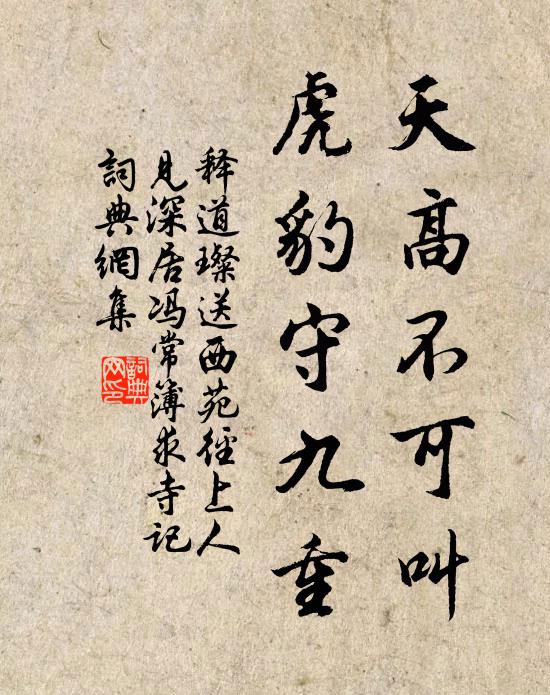 天高不可叫
虎豹守九重
释道璨送西苑徑上人
見深居冯常簿求寺記
詞典網集
詞典
网印